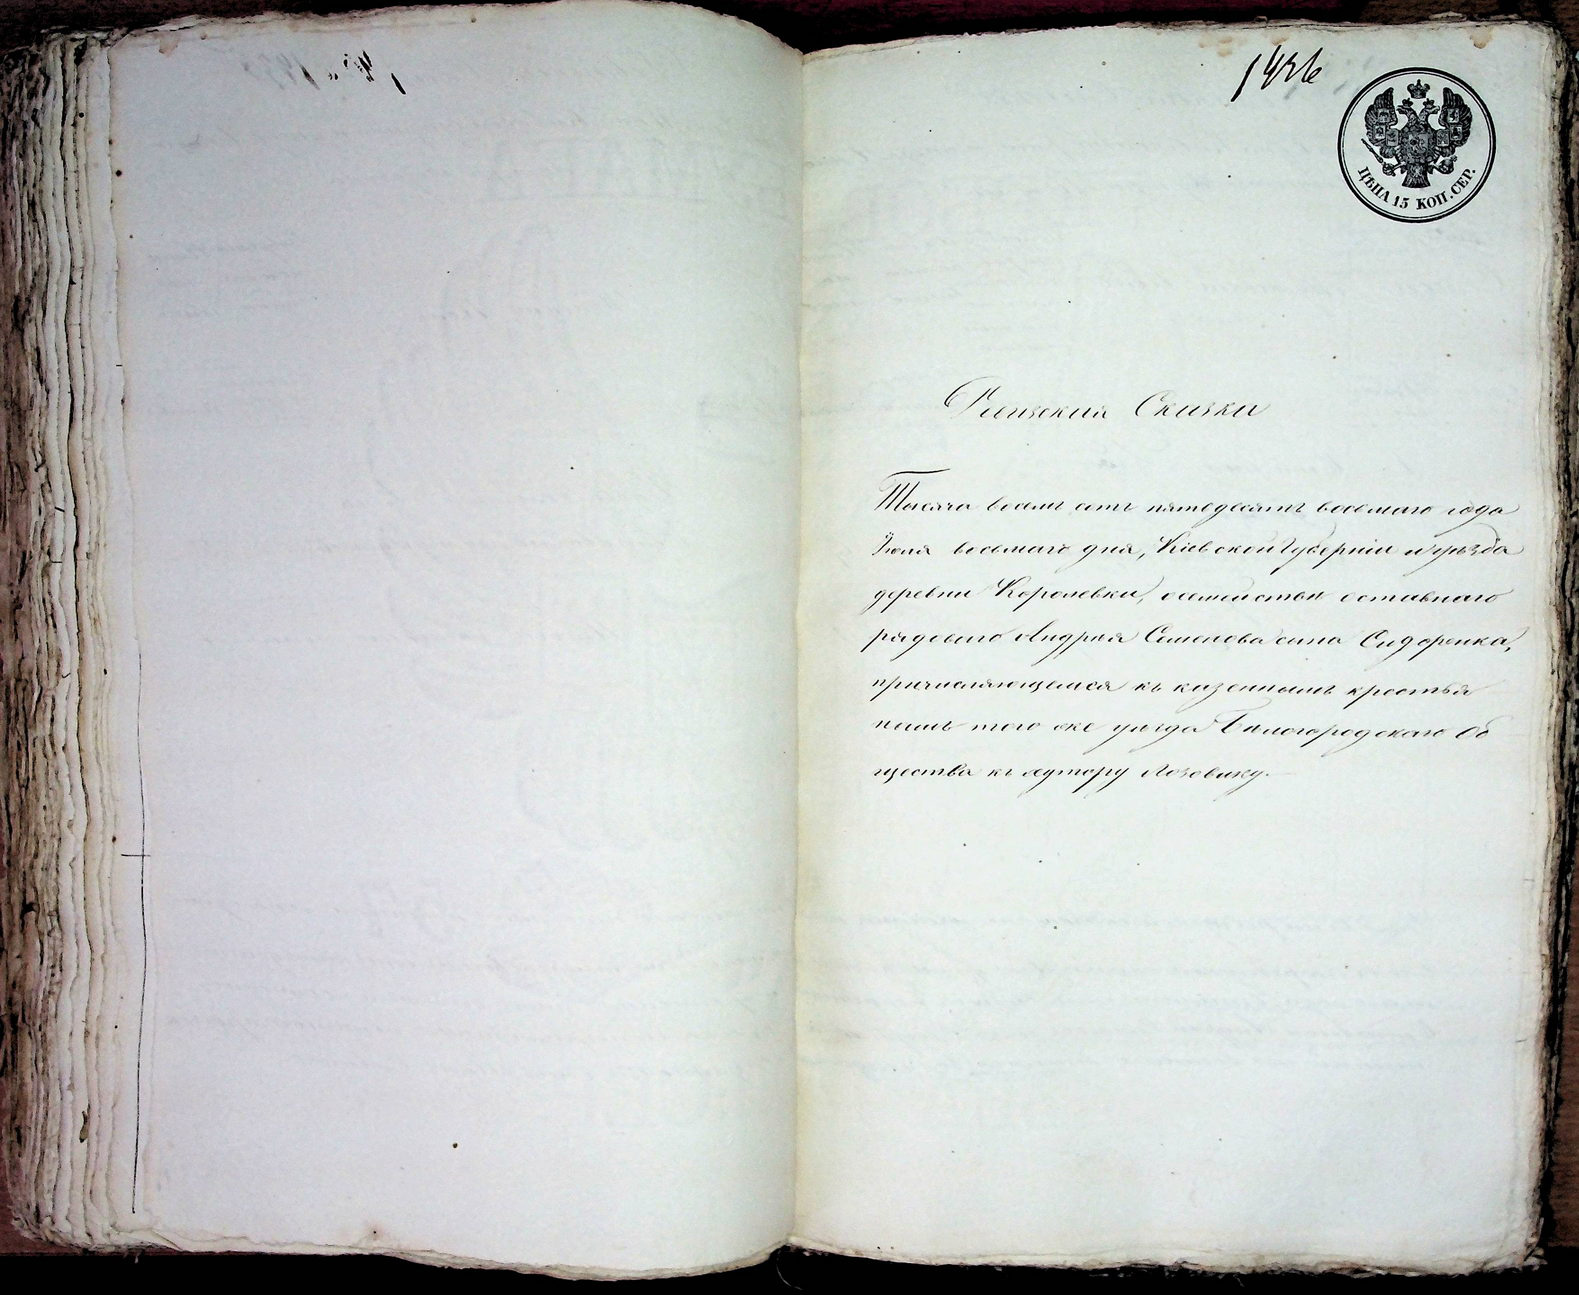 1436
ЦѢНА 15 КОП. СЕР.
Ревизская Сказка
Тысяча восемь сотъ пятьдесятъ восьмаго года
Іюля восьмаго дня, Кіевской Губерніи и уѣзда
деревни Королевки, о семействѣ отставнаго
рядоваго Андрея Семенова сына Сидоренка,
причисляющемся къ казеннымъ крестья
намъ того же уѣзда Бѣлогородскаго Об
щества къ Лозовику.